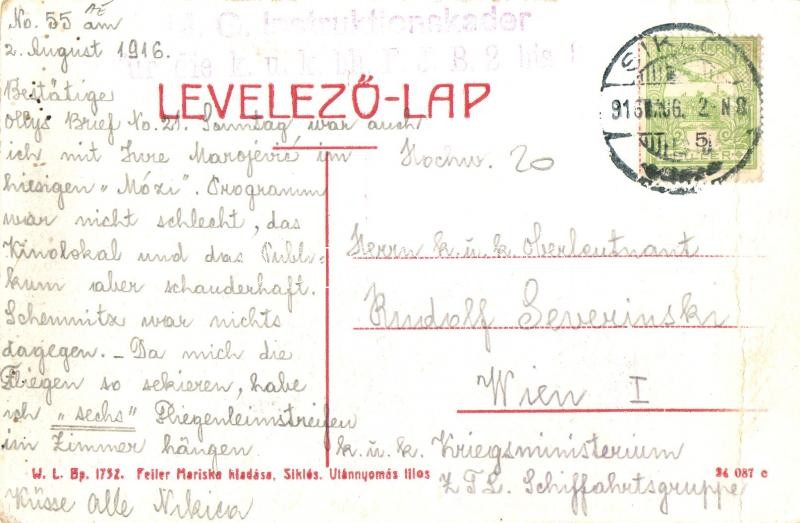 No. 55 am
2. August 1916.
M. G. Instruktionskader
für die k. u. k. bh. F. J. B. 2 bis
LEVELEZŐ-LAP
SIKLÓS
916 AUG. 2. N 8
5
Bestätige
Ollys Brief No. 21. Sonntag war auch
ich mit Jure Marojević im
hiesigen „Mózi". Programm
war nicht schlecht, das
Kinolokal und das Publi-
kum aber schauderhaft.
Schemnitz war nichts
dagegen. – Da mich die
Fliegen so sekieren, habe
ich „sechs" Fliegenleimstreifen
im Zimmer hängen.
Küsse Alle Nikica
Hochw. 20
Herrn k. u. k. Oberleutnant
Rudolf Severinski
Wien I
k. u. k. Kriegsministerium
Z.T.L. Schiffahrtsgruppe
W. L. Bp. 1732. Feller Mariska kiadása, Siklós. Utánnyomás tilos
24 087 c